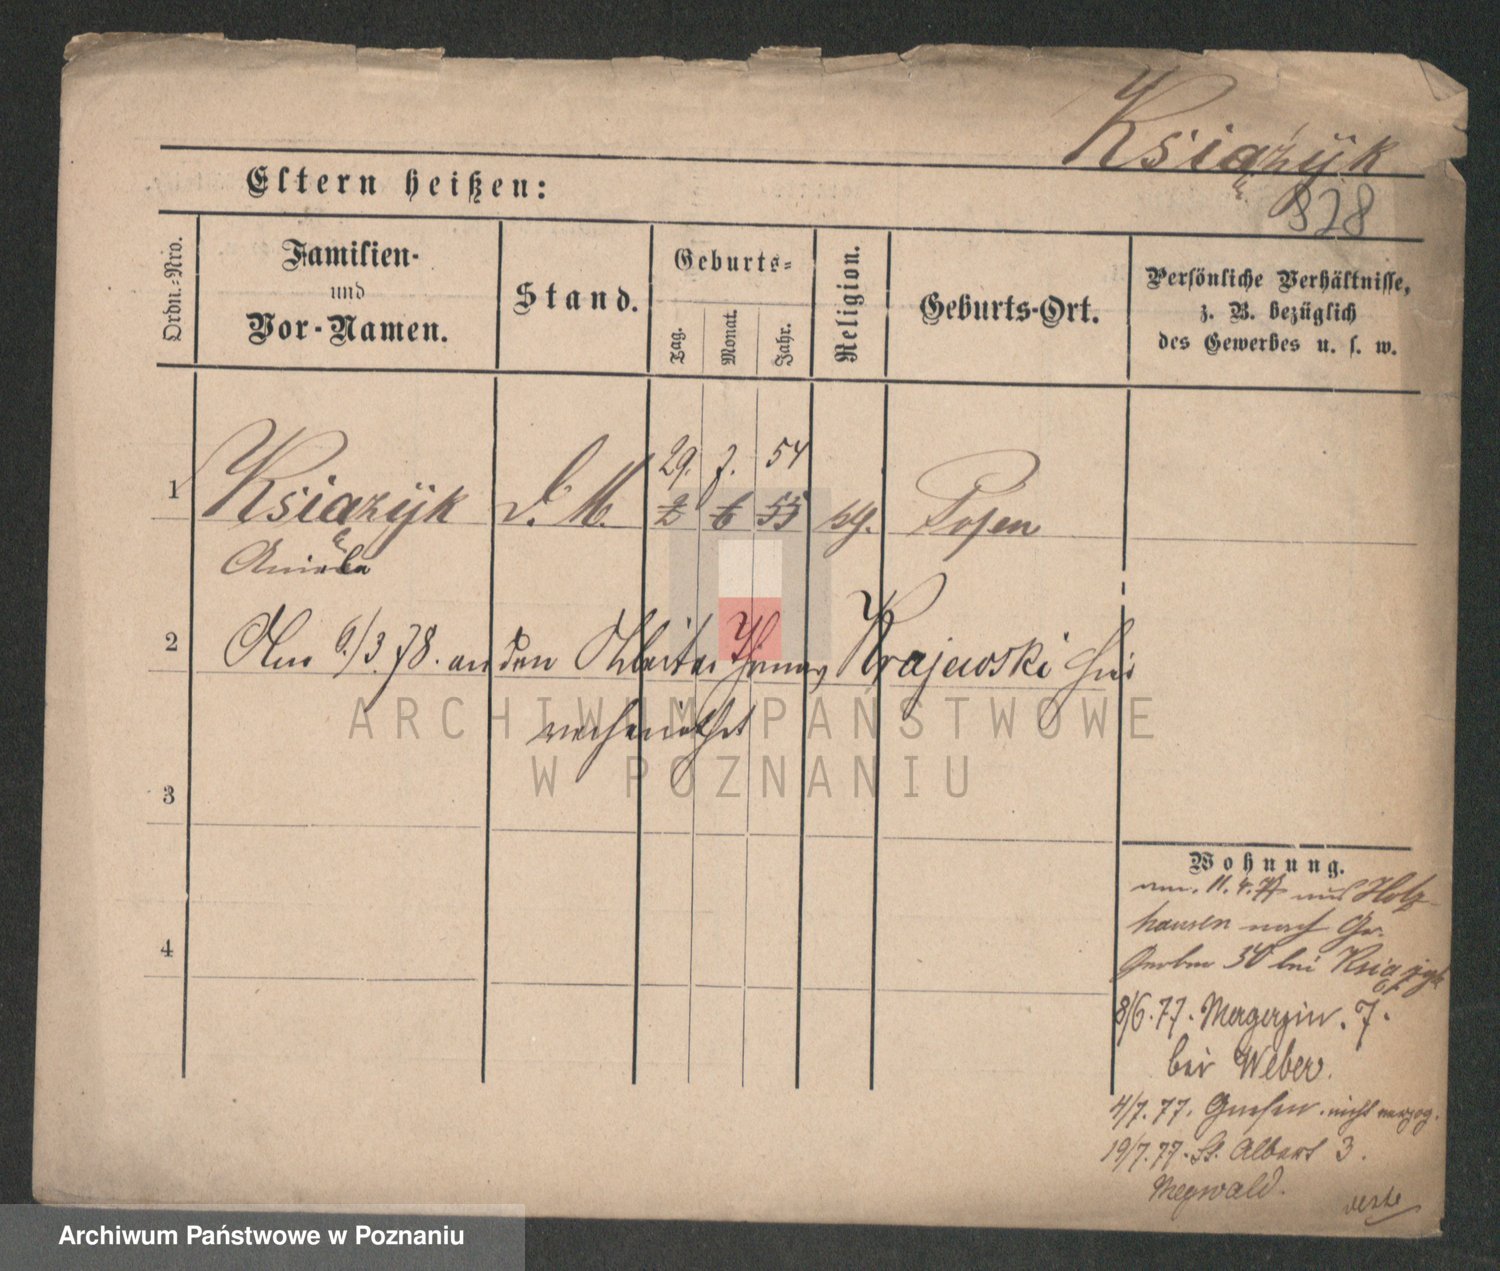 Ksiażÿk
828
Eltern heißen:
Ordn.-Nro.
Familien-
und
Vor-Namen.
Stand.
Geburts-
Tag.
Monat.
Jahr.
Religion.
Geburts-Ort.
Persönliche Verhältnisse,
z. B. bezüglich
des Gewerbes u. s. w.
29. 7. 54
1 Ksiazÿk D. M. 2 6 55 kg. Posen
Aniela
2 Am 6/3.78. an den Arbeiter Krajewski hier
verheirathet
ARCHIWUM PAŃSTWOWE
W POZNANIU
3
4
Wohnung.
am. 11.4.77 aus Holz-
hausen nach Gr.
Gerber 30 bei Ksiazyk
8/6.77. 7.
bei Weber.
4/7.77. Gnesen. nicht verzog.
19/7.77. St. Albert 3.
Megwald.
Archiwum Państwowe w Poznaniu